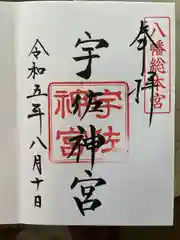 奉拝
八幡総本宮
宇佐神宮
宇佐神宮
令和五年八月十日